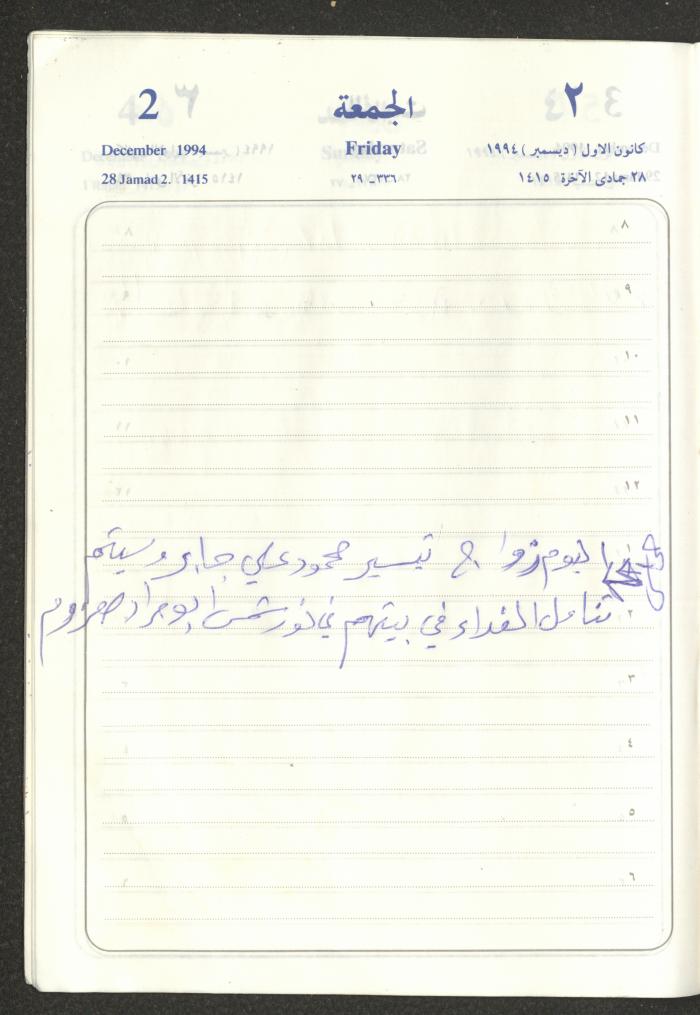 2 الجمعة ٢
December 1994 Friday كانون الاول ( ديسمبر ) ١٩٩٤
28 Jamad 2. 1415 ٣٣٦ - ٢٩ ٢٨ جمادى الآخرة ١٤١٥
٨
٩
١٠
١١
١٢
اليوم زواج تيسير محمود علي جابر وسيتم
تناول الغداء في بيتهم في نور شمس ابو جراد معزوم
٢
٣
٤
٥
٦